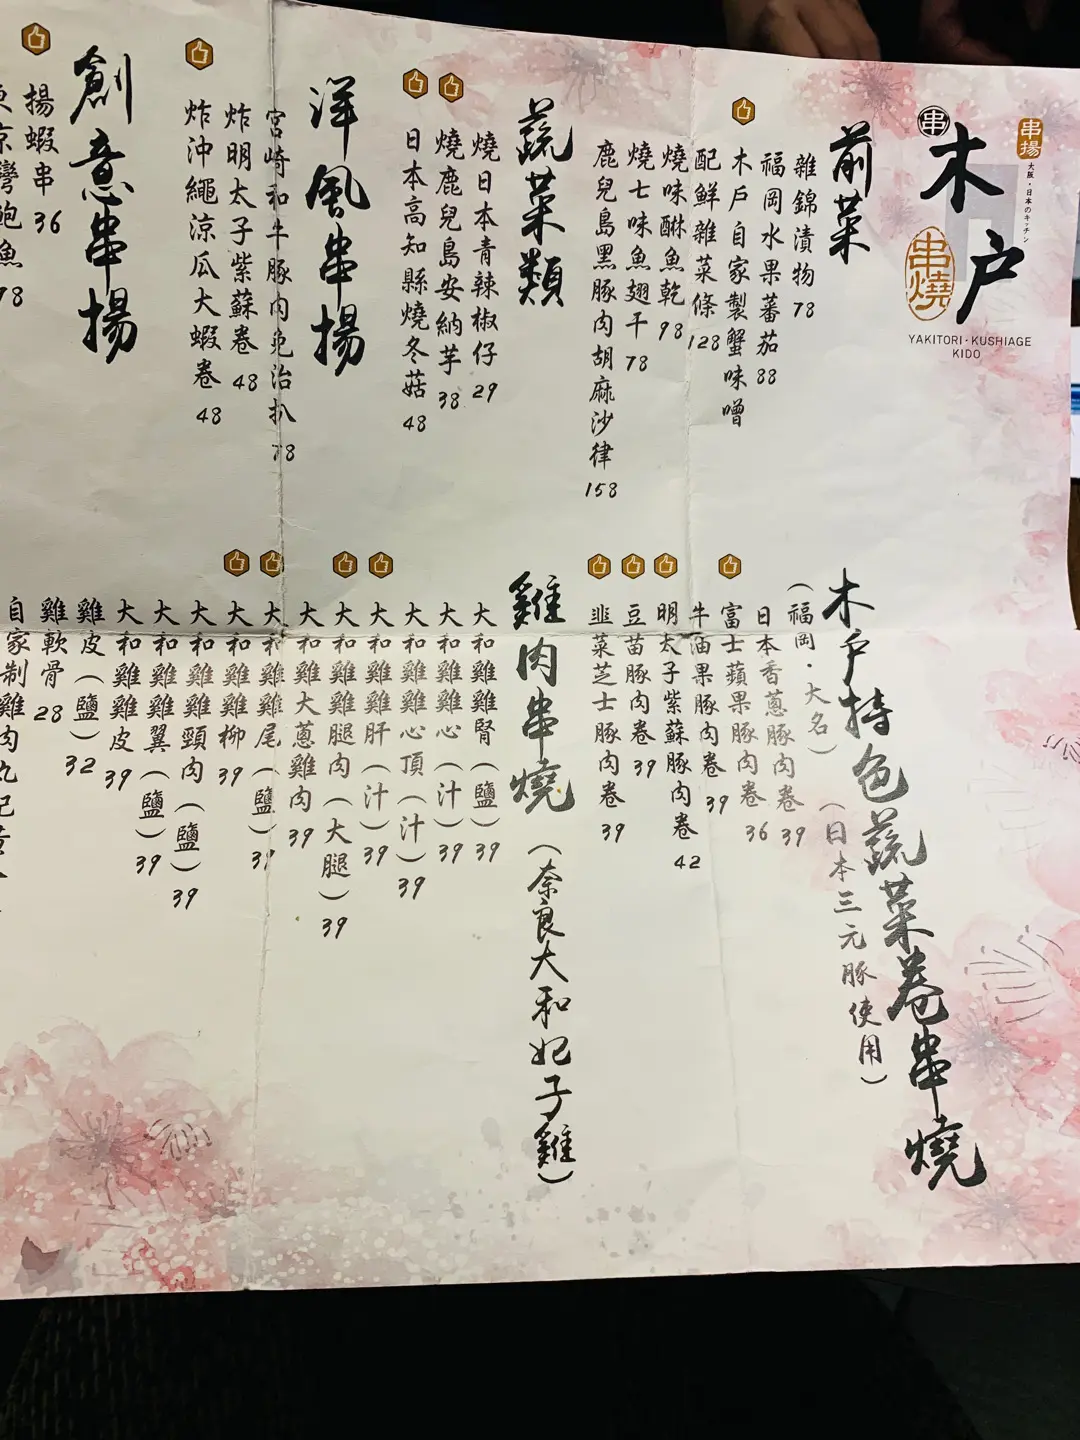 串揚
大阪・日本のキッチン
串
木户
串燒
YAKITORI・KUSHIAGE
KIDO
前菜
雜錦漬物 78
福岡水果蕃茄 88
木戶自家製蟹味噌
配鮮雜菜條 128
燒味醂魚乾 98
燒七味魚翅干 78
鹿兒島黑豚肉胡麻沙律 158
蔬菜類
燒日本青辣椒仔 29
燒鹿兒島安納芋 38
日本高知縣燒冬菇 48
洋風串揚
宮崎和牛豚肉免治扒 78
炸明太子紫蘇卷 48
炸沖繩涼瓜大蝦卷 48
創意串揚
揚蝦串 36
東京灣鮑魚 78
木戶特色蔬菜卷串燒
（日本三元豚使用）
（福岡・大名）
日本香蔥豚肉卷 39
富士蘋果豚肉卷 36
牛油果豚肉卷 39
明太子紫蘇豚肉卷 42
豆苗豚肉卷 39
韮菜芝士豚肉卷 39
雞肉串燒（奈良大和妃子雞）
大和雞雞腎（鹽）39
大和雞雞心（汁）39
大和雞心頂（汁）39
大和雞雞肝（汁）39
大和雞雞腿肉（大腿）39
大和雞大蔥雞肉 39
大和雞雞尾（鹽）39
大和雞雞柳 39
大和雞雞頸肉（鹽）39
大和雞雞翼（鹽）39
大和雞雞皮 39
雞皮（鹽）32
雞軟骨 28
自家制雞肉丸